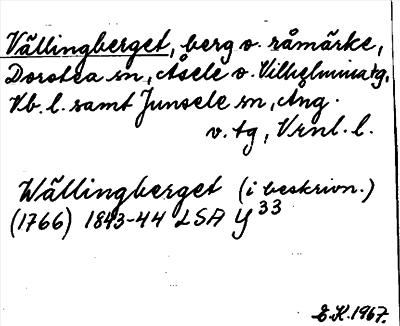 Vällingberget, berg o. råmärke,
Dorotea sn, Åsele o. Vilhelmina tg,
Vb. l. samt Junsele sn, Ång.
v. tg, Vrnl. l.
Wällingberget (i beskrivn.)
(1766) 1843-44 LSA Y 33
E.K. 1967.